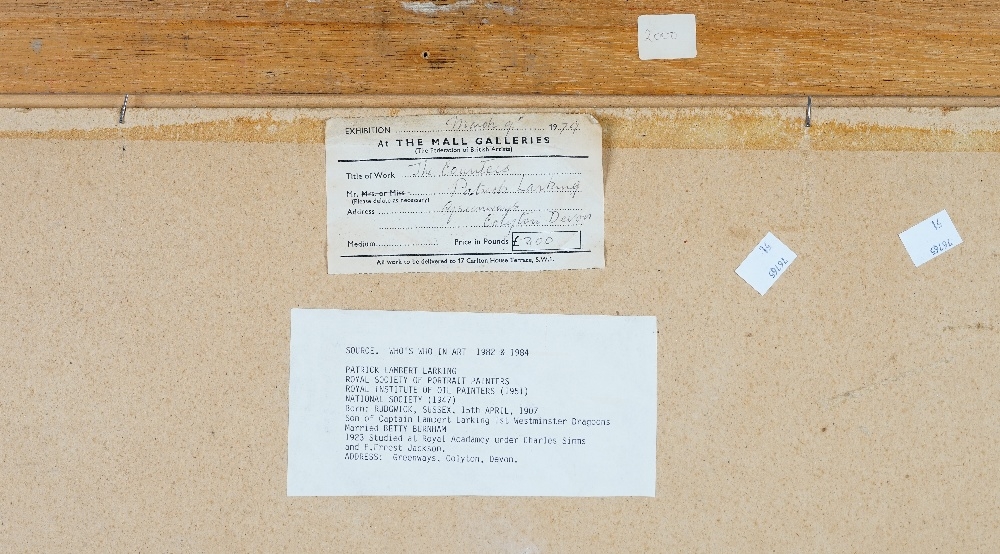 2000
EXHIBITION March 9th 1979
At THE MALL GALLERIES
(The Federation of British Artists)
Title of Work The
Mr. Mrs. or Miss Patrick Larking
(Please delete as necessary)
Address Greenways
Colyton Devon
Medium Price in Pounds £300
All work to be delivered to 17 Carlton House Terrace, S.W.1.
94
76765
94
76765
SOURCE. WHO'S WHO IN ART 1982 & 1984
PATRICK LAMBERT LARKING
ROYAL SOCIETY OF PORTRAIT PAINTERS
ROYAL INSTITUTE OF OIL PAINTERS (1951)
NATIONAL SOCIETY (1947)
Born: RUDGWICK, SUSSEX. 15th APRIL, 1907
Son of Captain Lambert Larking 1st Westminster Dragoons
Married BETTY BURNHAM
1923 Studied at Royal Acadamey under Charles Simms
and F.Ernest Jackson.
ADDRESS: Greenways. Colyton, Devon.